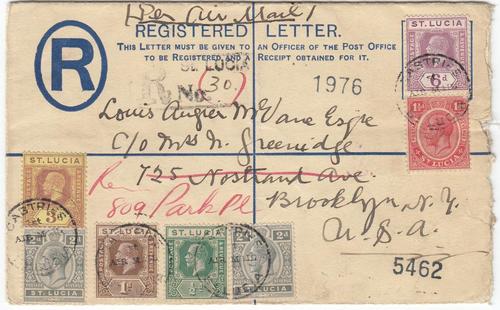 (Per Air Mail)
REGISTERED LETTER.
THIS LETTER MUST BE GIVEN TO AN OFFICER OF THE POST OFFICE
TO BE REGISTERED AND A RECEIPT OBTAINED FOR IT.
R
ST. LUCIA
R No. 30.
1976
ST. LUCIA
6d
CASTRIES
1d
ST. LUCIA
Louis Angier McVane Esqre
C/o Mrs N. Greenidge
725 Nostrand Ave.
809 Park Pl
Brooklyn, N.Y.
U.S.A.
5462
ST. LUCIA
3d
CASTRIES
2d
ST. LUCIA
ST. LUCIA
1d
ST. LUCIA
½d
2d
ST. LUCIA